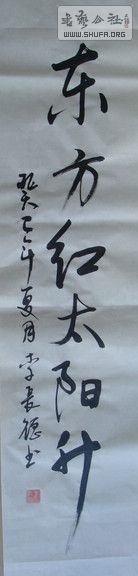 书艺公社
www.SHUFA.ORG
东方红太阳升
夏月李长德书